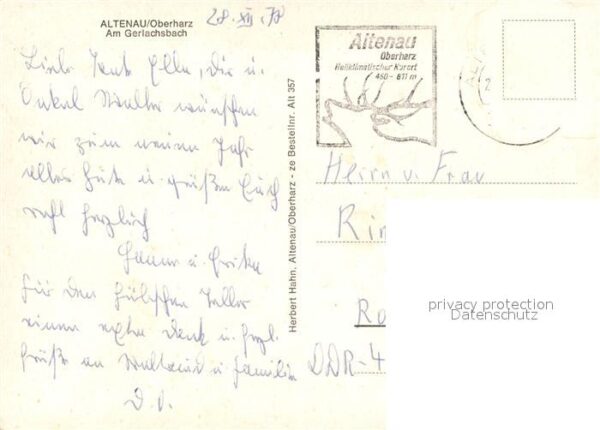 ALTENAU/Oberharz
Am Gerlachsbach
28. XII. 78
Liebe Tante Ella, dir u.
Onkel Walter wünschen
wir zum neuen Jahr
alles Gute u. grüßen Euch
recht herzlich
Hanne u. Erika
Für den hübschen Teller
einen extra Dank u. herzl.
Grüße an u. Familie
D. O.
Herbert Hahn, Altenau/Oberharz - ze Bestellnr. Alt 357
Altenau
Oberharz
Heilklimatischer Kurort
450 - 811 m
Herrn u. Frau
Rin
Ro
DDR-4
privacy protection
Datenschutz